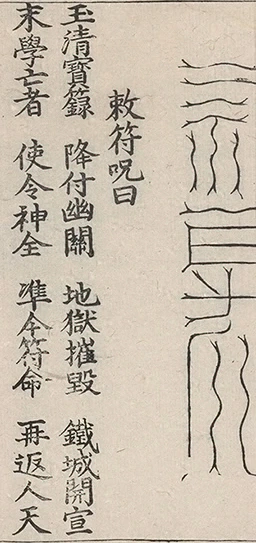 敕符呪曰
玉清寶籙 降付幽關 地獄摧毀 鐵城開宣
末學亡者 使令神全 準今符命 再返人天